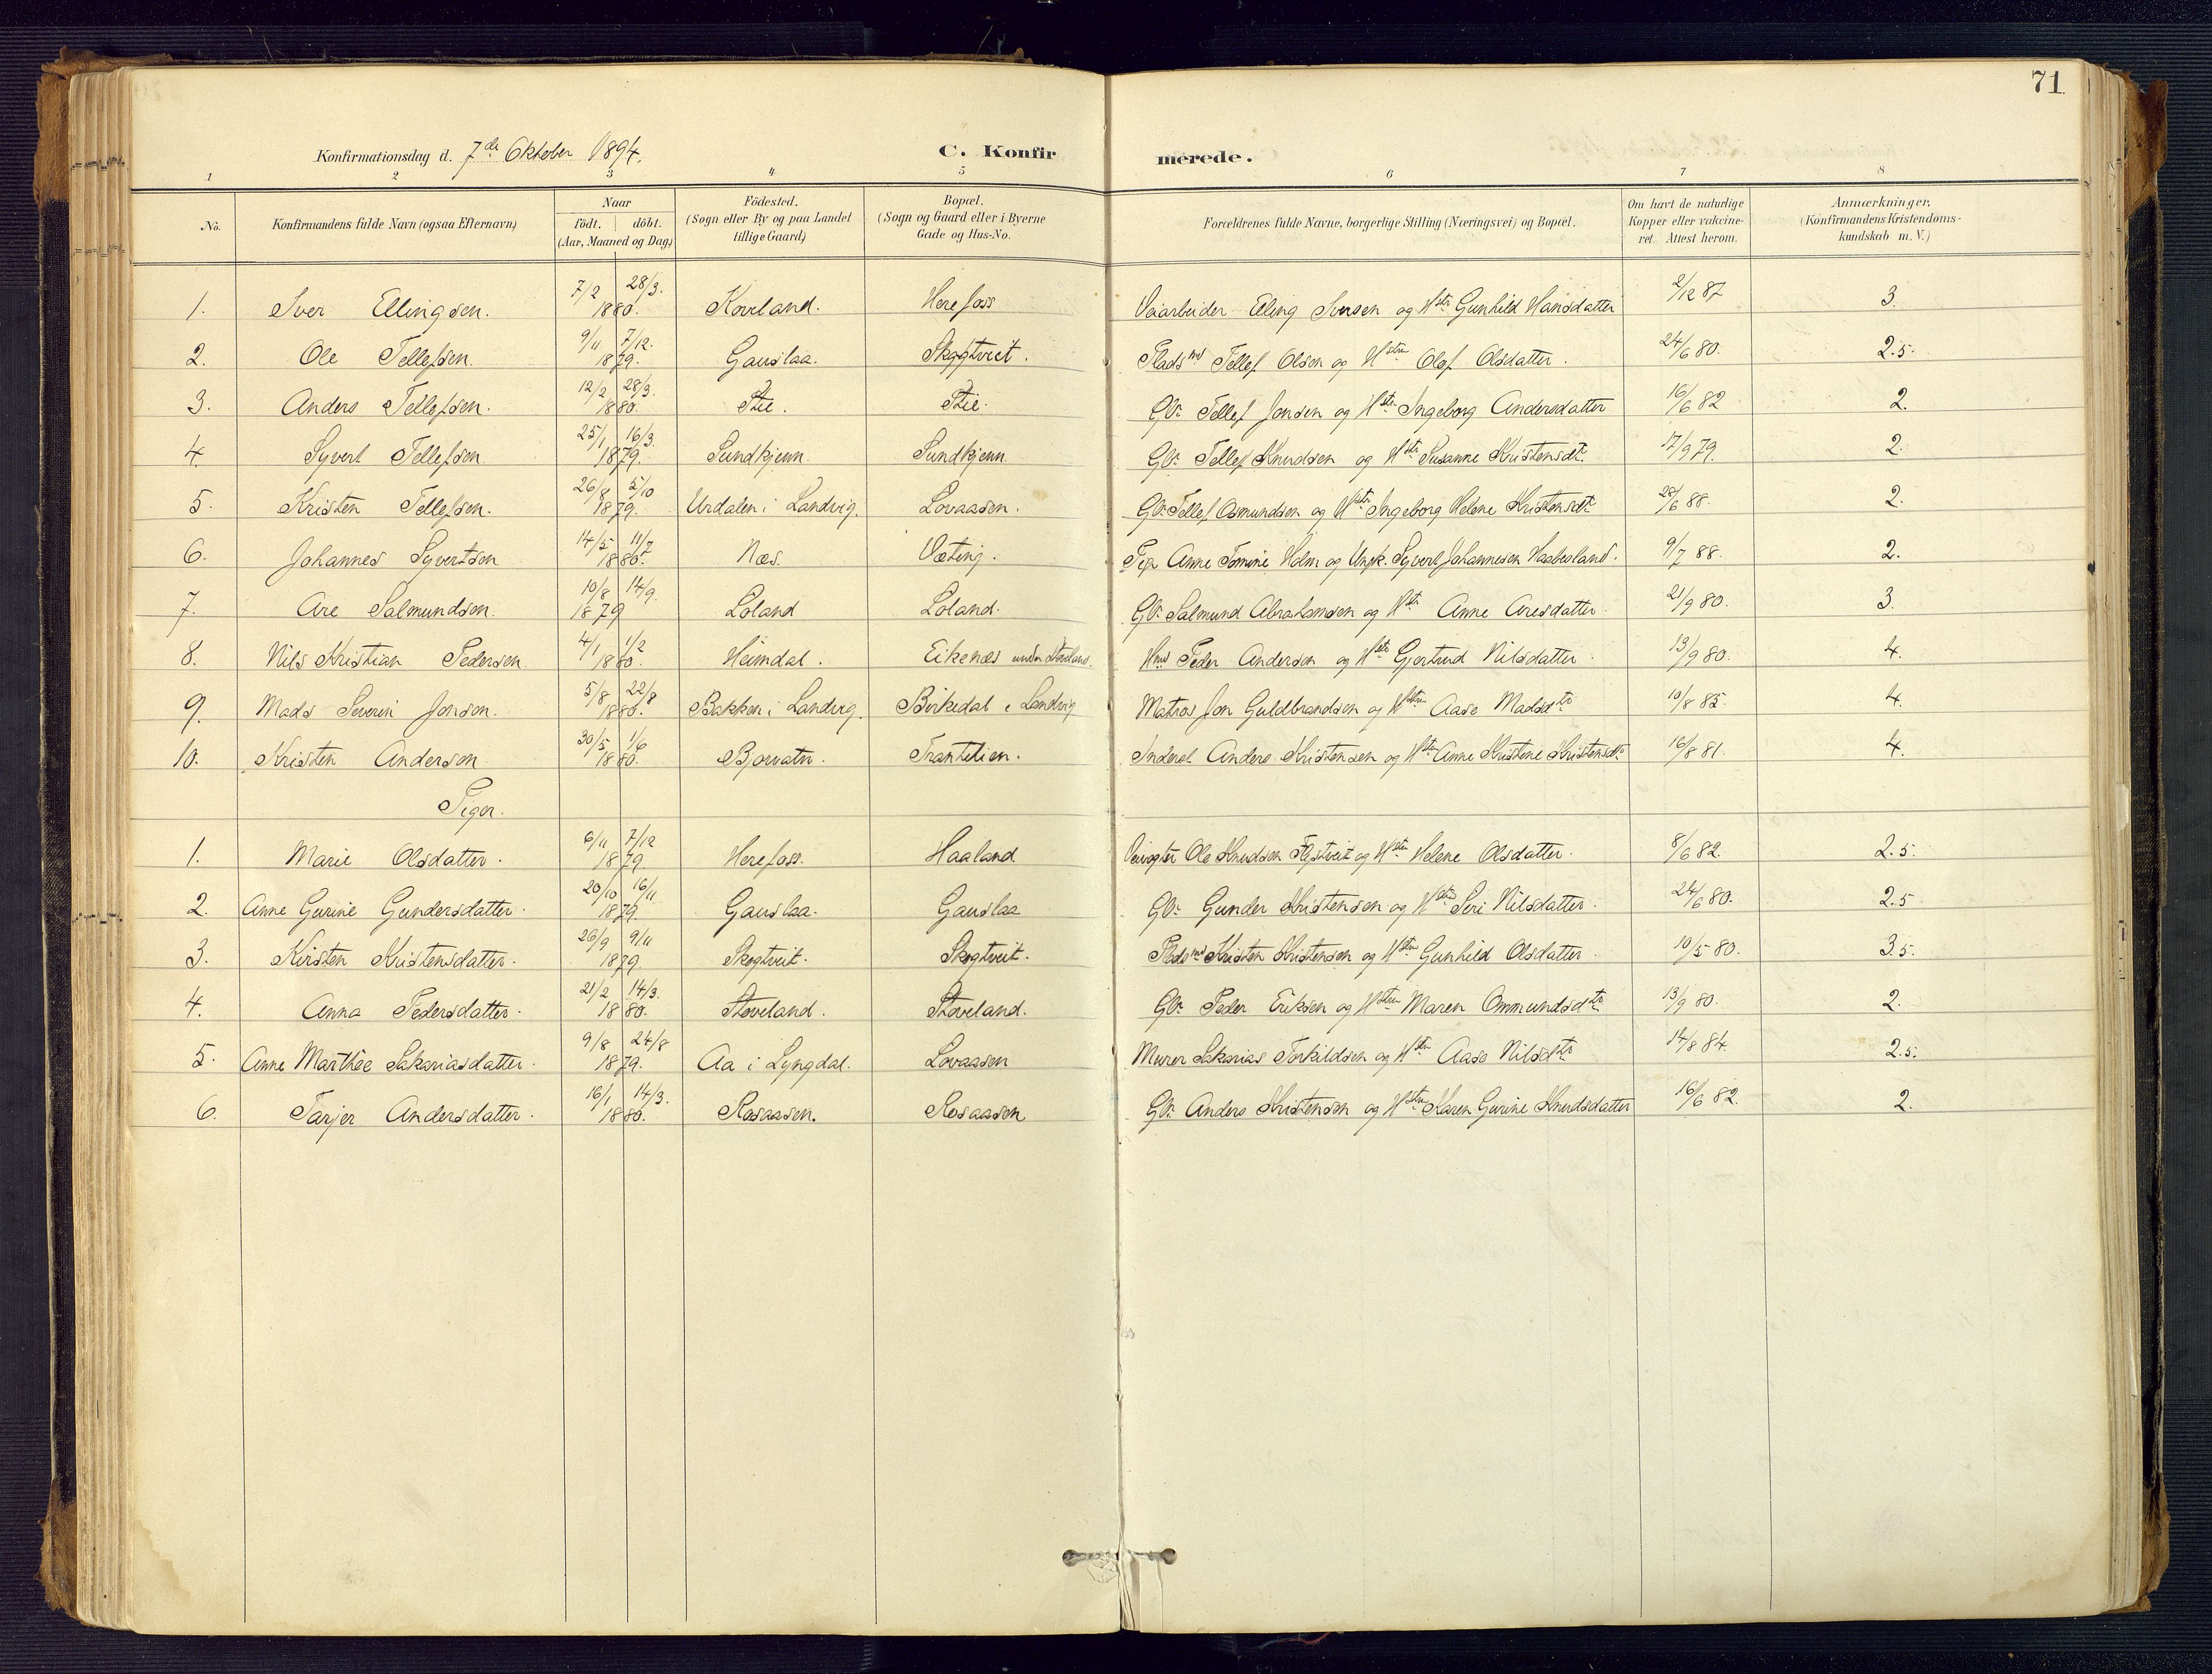 71.
Konfirmationsdag d. 7de Oktober 1894. C. Konfirmerede.
1 2 3 4 5 6 7 8
No. Konfirmandens fulde Navn (ogsaa Efternavn) Naar födt. döbt. (Aar, Maaned og Dag) Födested. (Sogn eller By og paa Landet tillige Gaard) Bopæl. (Sogn og Gaard eller i Byerne Gade og Hus-No. Forældrenes fulde Navne, borgerlige Stilling (Næringsvei) og Bopæl. Om havt de naturlige Kopper eller vakcineret. Attest herom. Anmærkninger. (Konfirmandens Kristendomskundskab m. V.)
1. Iver Ellingsen. 7/2 28/3. 1880. Koveland. Herefoss Veiarbeider Elling Iversen og Hstr Gunhild Hansdatter 2/12 87 3.
2. Ole Tellefsen. 9/11 7/12. 1879. Gauslaa. Skogtveit. Pladsmd Tellef Olsen og Hstru Olef Olsdatter. 24/6 80. 2.5.
3. Anders Tellefsen. 12/2 28/3. 1880. Stie. Stie. Gbr. Tellef Jonsen og Hstr Ingeborg Andersdatter 16/6 82 2.
4. Syvert Tellefsen 25/1 16/3. 1879. Sundkjenn. Sundkjenn Gbr. Tellef Knudsen og Hstr Susanne Kristensdtr. 17/9 79. 2.
5. Kristen Tellefsen. 26/8 5/10 1879. Urdalen i Landvig. Lovaasen. Gbr. Tellef Osmundsen og Hstr Ingeborg Helene Kristensdtr 28/6 88. 2.
6. Johannes Syvertsen 14/5 11/7 1880. Næs. Væting. Pige Anne Tomine Holm og Ungk. Syvert Johannesen Haabesland. 9/7 88. 2.
7. Are Salmundsen. 10/8 14/9. 1879 Loland Loland. Gbr. Salmund Abrahamsen og Hstr Anne Aresdatter 21/9 80. 3.
8. Nils Kristian Pedersen 4/1 1/2 1880. Heimdal. Eikenæs under Støveland. Hmd Peder Andersen og Hstr Gjertrud Nilsdatter. 13/9 80. 4.
9. Mads Severin Jonsen. 5/8 22/8 1880. Bakken i Landvig. Birkedal i Landvig Matros Jon Guldbrandsen og Hstru Aase Madsdtr 10/8 85. 4.
10. Kristen Andersen. 30/5 1/6 1880. Bjorvatn. Trantelien. Inderst Anders Kristensen og Hstru Anne Kristine Kristensdtr 16/8 81. 4.
Piger.
1. Marie Olsdatter. 6/11 7/12 1879. Herefoss. Haaland Veivogter Ole Knudsen Flystveit og Hstru Helene Olsdatter. 8/6 82. 2.5.
2. Anne Gurine Gundersdatter. 20/10 16/11 1879. Gauslaa. Gauslaa Gbr. Gunder Kristensen og Hstru Siri Nilsdatter. 24/6 80. 2.5
3. Kirsten Kristensdatter. 26/9 9/11 1879 Skogtveit. Skogtveit. Pladsmd Kristen Kristensen og Hstru Gunhild Olsdatter. 10/5 80. 3.5.
4. Anna Pedersdatter. 21/2 14/3. 1880. Støveland. Støveland. Gbr. Peder Eriksen og Hstru Maren Ommundsdtr 13/9 80. 2.
5. Anne Marthie Sakariasdatter. 9/8 24/8 1879. Aa i Lyngdal. Lovaasen Murer Sakarias Torkildsen og Hstr Aase Nilsdtr 14/8 84. 2.5.
6. Tarjer Andersdatter. 16/1 14/3. 1880. Rosaasen. Rosaasen Gbr. Anders Kristensen og Hstru Karen Gurine Knudsdatter 16/6 82. 2.